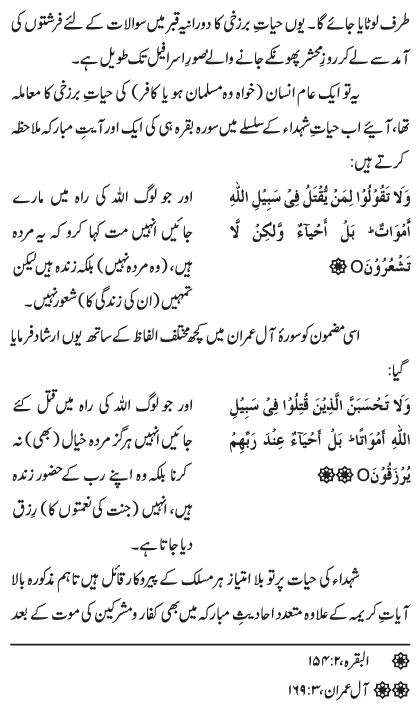 طرف لوٹایا جائے گا۔ یوں حیاتِ برزخی کا دورانیہ قبر میں سوالات کے لئے فرشتوں کی
آمد سے لے کر روزِ محشر پھونکے جانے والے صورِ اسرافیل تک طویل ہے۔
یہ تو ایک عام انسان (خواہ وہ مسلمان ہو یا کافر) کی حیاتِ برزخی کا معاملہ
تھا، آیئے اب حیاتِ شہداء کے سلسلے میں سورہ بقرہ ہی کی ایک اور آیتِ مبارکہ ملاحظہ
کرتے ہیں:
وَلَا تَقُوْلُوْا لِمَنْ يُّقْتَلُ فِيْ سَبِيْلِ اللهِ
اَمْوَاتٌ ط بَلْ اَحْيَآءٌ وَّلٰكِنْ لَّا
تَشْعُرُوْنَO
اور جو لوگ اللہ کی راہ میں مارے
جائیں انہیں مت کہا کرو کہ یہ مردہ
ہیں، (وہ مردہ نہیں) بلکہ زندہ ہیں لیکن
تمہیں (ان کی زندگی کا) شعور نہیں۔
اسی مضمون کو سورۂ آل عمران میں کچھ مختلف الفاظ کے ساتھ یوں ارشاد فرمایا
گیا:
وَلَا تَحْسَبَنَّ الَّذِيْنَ قُتِلُوْا فِيْ سَبِيْلِ
اللهِ اَمْوَاتًا ط بَلْ اَحْيَآءٌ عِنْدَ رَبِّهِمْ
يُرْزَقُوْنَO
اور جو لوگ اللہ کی راہ میں قتل کئے
جائیں انہیں ہرگز مردہ خیال (بھی) نہ
کرنا بلکہ وہ اپنے رب کے حضور زندہ
ہیں، انہیں (جنت کی نعمتوں کا) رزق
دیا جاتا ہے۔
شہداء کی حیات پر تو بلا امتیاز ہر مسلک کے پیروکار قائل ہیں تاہم مذکورہ بالا
آیاتِ کریمہ کے علاوہ متعدد احادیثِ مبارکہ میں بھی کفار و مشرکین کی موت کے بعد
البقرہ، ۲:۱۵۴
آل عمران، ۳:۱۶۹